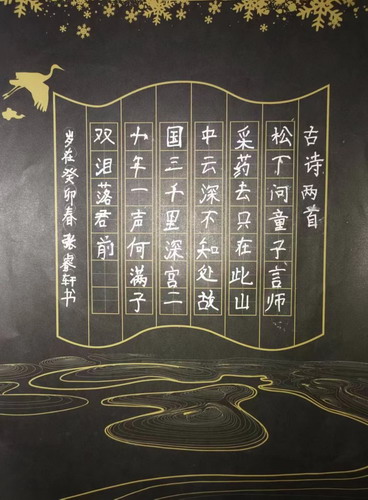 古诗两首
松下问童子言师
采药去只在此山
中云深不知处故
国三千里深宫二
十年一声何满子
双泪落君前
岁在癸卯春张睿轩书